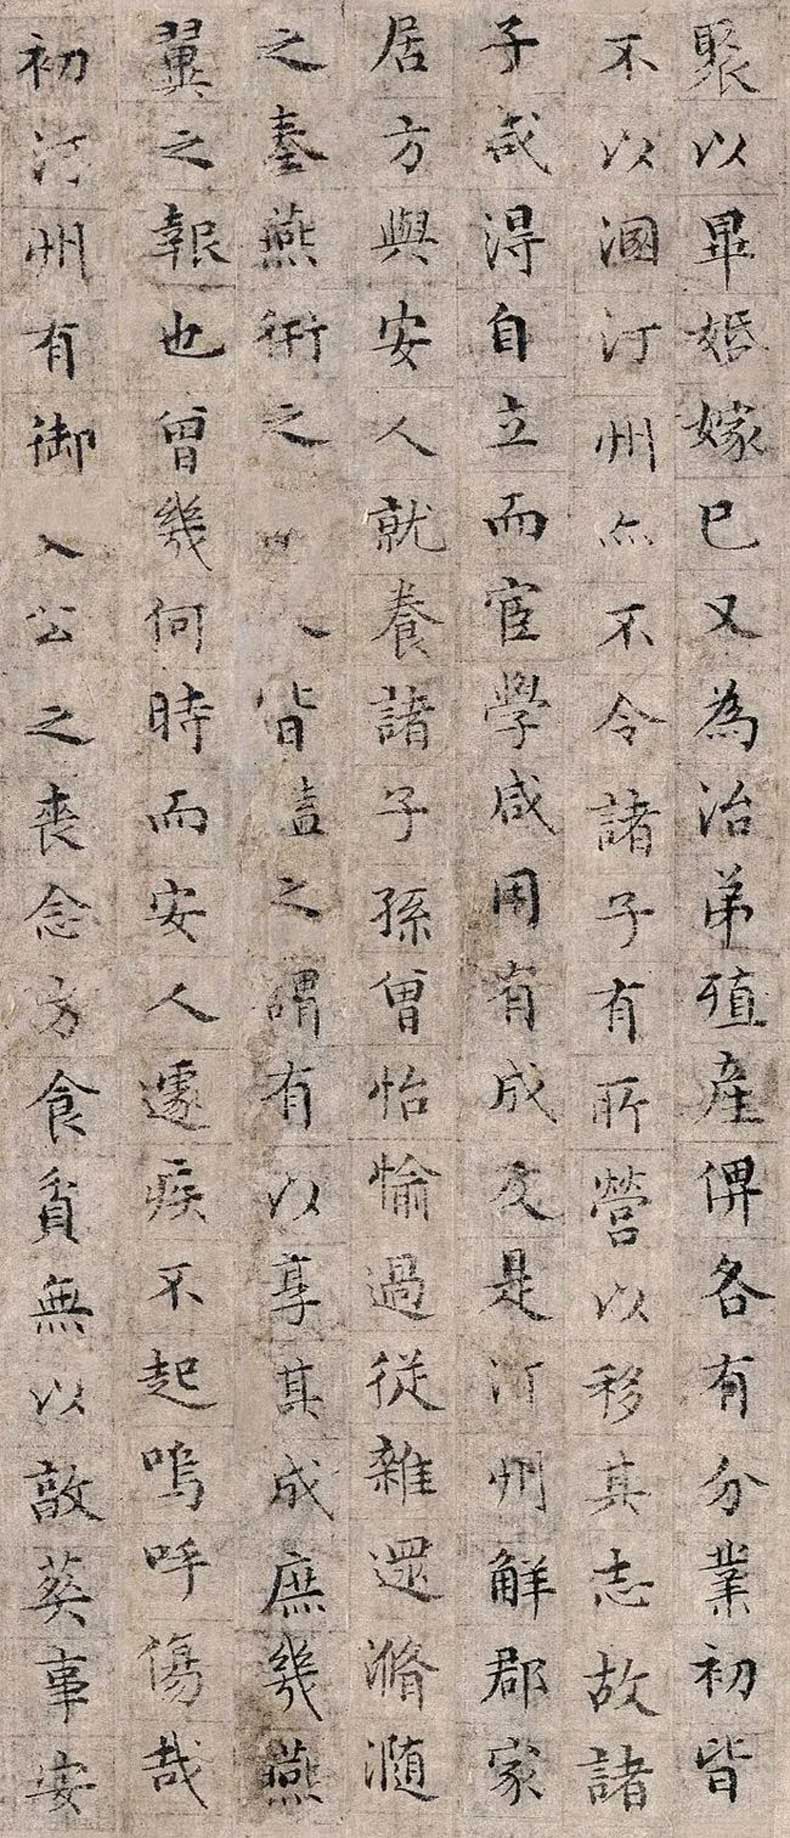 聚以畢婚嫁已又為治弟殖產俾各有分業初皆
不以溷汀州亦不令諸子有所營以移其志故諸
子咸得自立而宦學咸用有成及是汀州解郡家
居方與安人就養諸子孫曾怡愉過從雜遝滫瀡
之奉燕衎之皆之謂有以享其成庶幾燕
翼之報也曾幾何時而安人遽疾不起嗚呼傷哉
初汀州有御公之喪念方食貧無以敦葬事安